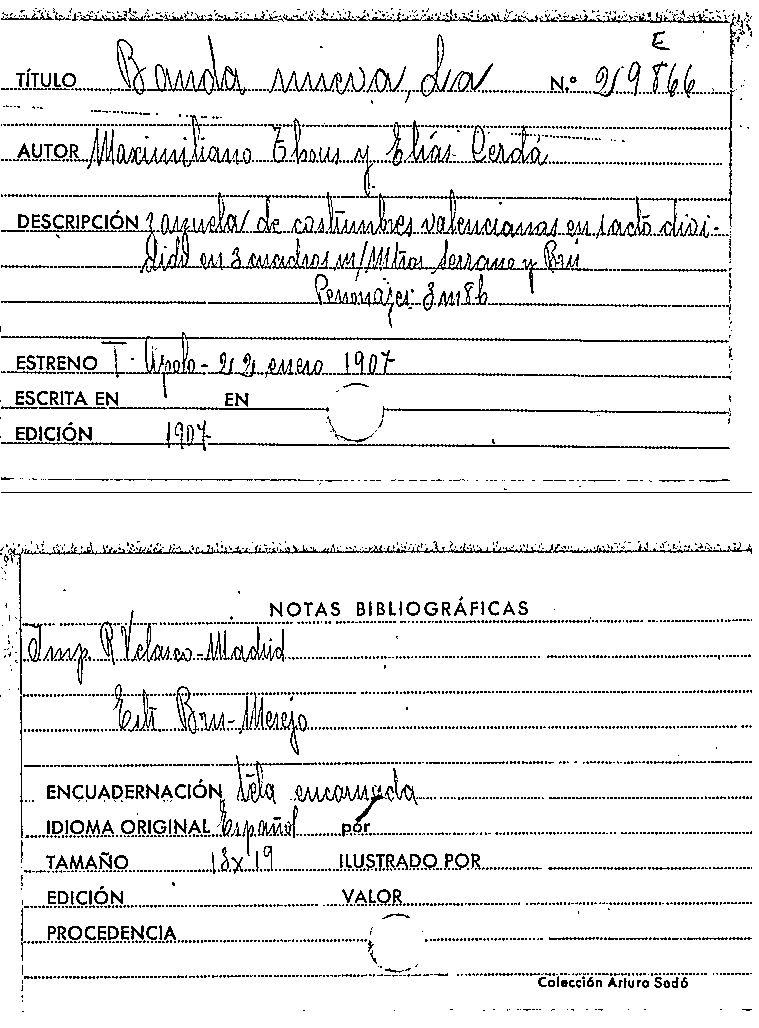 E
TÍTULO Banda nueva, La N.º 219866
AUTOR Maximiliano Thous y Elías Cerdá
DESCRIPCIÓN zarzuela de costumbres valencianas en 1 acto divi-
dido en 3 cuadros m/Mtros Serrano y Brú
Personajes: 3m8h
ESTRENO T. Apolo - 22 enero 1907
ESCRITA EN EN
EDICIÓN 1907
NOTAS BIBLIOGRÁFICAS
Imp. R Velasco - Madrid
Est: Bru - Mesejo
ENCUADERNACIÓN tela encarnada
IDIOMA ORIGINAL Español por
TAMAÑO 13x19 ILUSTRADO POR
EDICIÓN VALOR
PROCEDENCIA
Colección Arturo Sedó